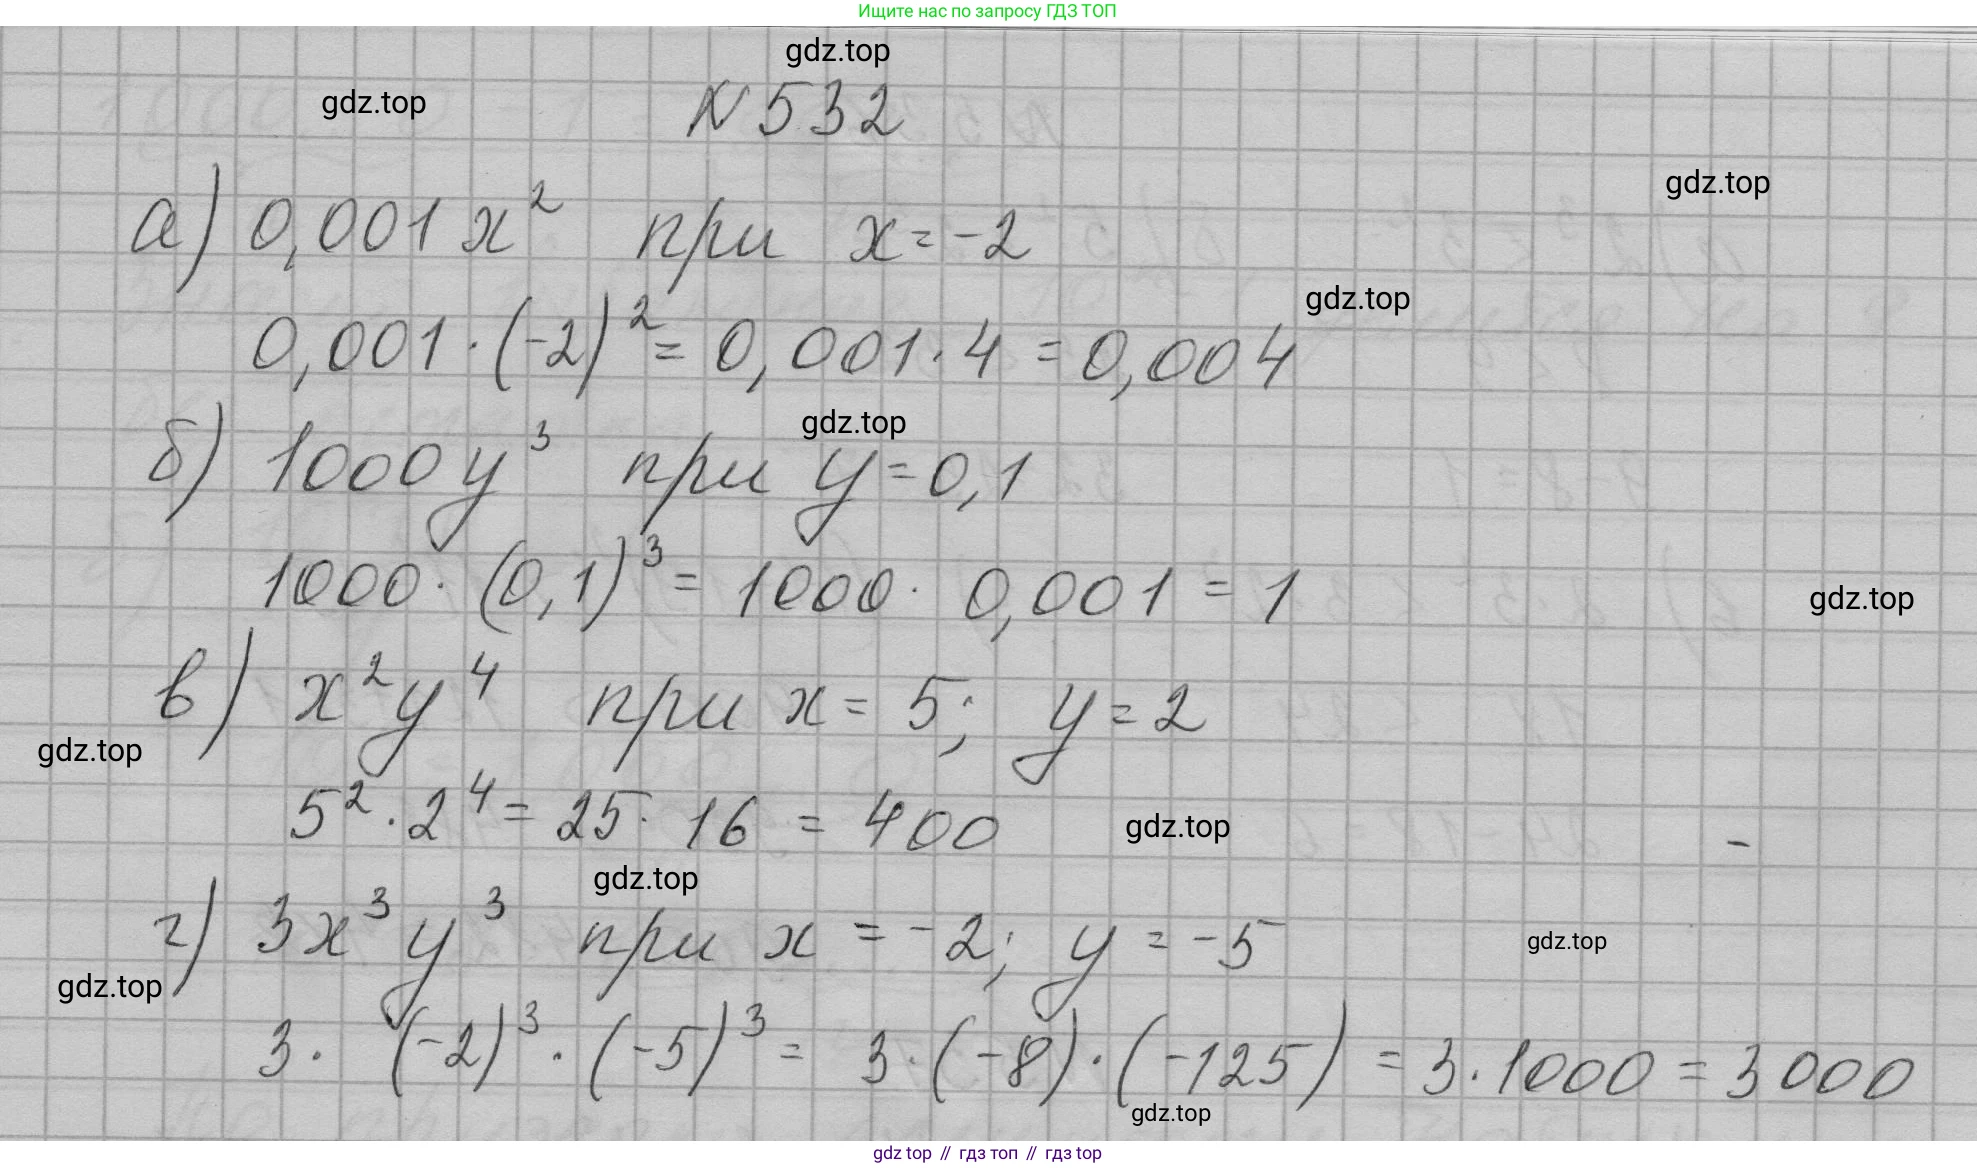 Ищите нас по запросу ГДЗ ТОП
gdz.top
gdz.top
N 532
gdz.top
а) 0,001x² при x = -2
gdz.top
0,001 · (-2)² = 0,001 · 4 = 0,004
gdz.top
б) 1000y³ при y = 0,1
1000 · (0,1)³ = 1000 · 0,001 = 1
gdz.top
в) x²y⁴ при x = 5; y = 2
gdz.top
5² · 2⁴ = 25 · 16 = 400
gdz.top
gdz.top
г) 3x³y³ при x = -2; y = -5
gdz.top
gdz.top
3 · (-2)³ · (-5)³ = 3 · (-8) · (-125) = 3 · 1000 = 3000
gdz.top
gdz top // гдз топ // гдз top